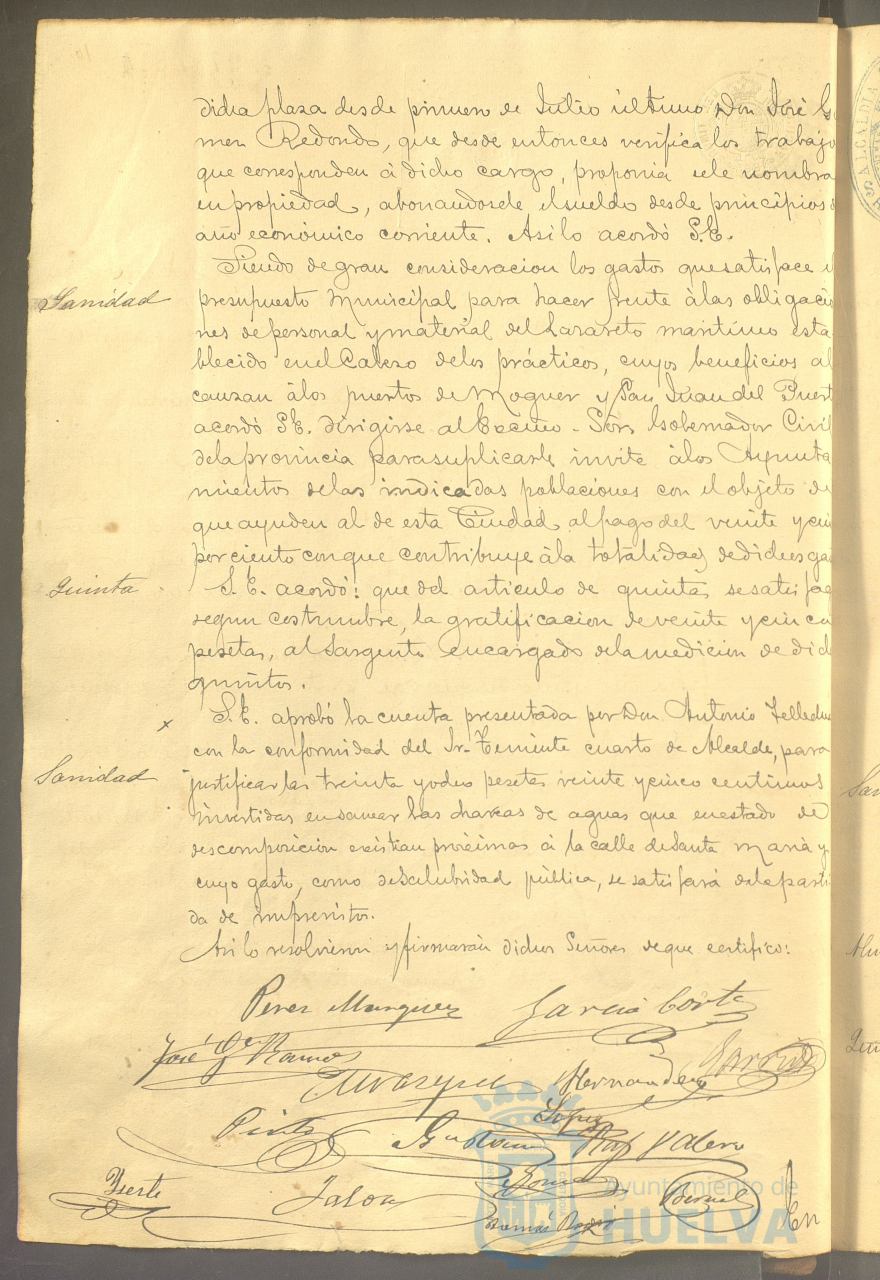 dicha plaza desde primero de Julio último Don José Go
mez Redondo, que desde entonces verifica los trabajo
que corresponden á dicho cargo, proponia se le nombra
en propiedad, abonandosele el sueldo desde principios d
año económico corriente. Asi lo acordó S.E.
Sanidad
Siendo de gran consideracion los gastos que satisface e
presupuesto Municipal para hacer frente á las obligacio
nes de personal y material del Lazareto maritimo esta
blecido en el Cabezo de los prácticos, cuyos beneficios al
canzan á los puertos de Moguer y San Juan del Puert
acordó S.E. dirigirse al Excmo. Sor. Gobernador Civil
de la provincia para suplicarle invite á los Ayunta
mientos de las indicadas poblaciones con el objeto de
que ayuden al de esta Ciudad al pago del veinte y cin
por ciento con que contribuye á la totalidad de dichos gas
Quinta
S.E. acordó: que del articulo de quintas se satisfag
segun costumbre, la gratificacion de veinte y cinco
pesetas, al Sargento encargado de la medicion de dich
quintos.
Sanidad
S.E. aprobó la cuenta presentada por Don Antonio
con la conformidad del Sr. Teniente cuarto de Alcalde, para
justificar las treinta y ocho pesetas veinte y cinco centimos
invertidas en sanear las charcas de aguas que en estado de
descomposicion existian próximas á la calle de Santa Maria y
cuyo gasto, como de Salubridad pública, se satisfará de la parti
da de imprevistos.
Asi lo resolvieron y firmarán dichos Señores de que certifico:
Perez Marquez Garcia Cortes
José Ga Ramos Garrido
Vazquez Hernandez
Lopez
Pinto Valero
Yserte Jaldon Bernal
Tomás
En
Ayuntamiento de
HUELVA
ALCALDIA